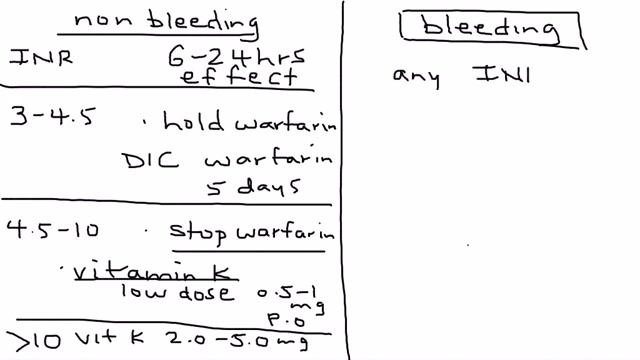 non bleeding
INR 6-24hrs
effect
3-4.5 · hold warfarin
DIC warfarin
5 days
4.5-10 · stop warfarin
· vitamin K
low dose 0.5-1
mg
P.O
>10 vit K 2.0-5.0mg
bleeding
any INR